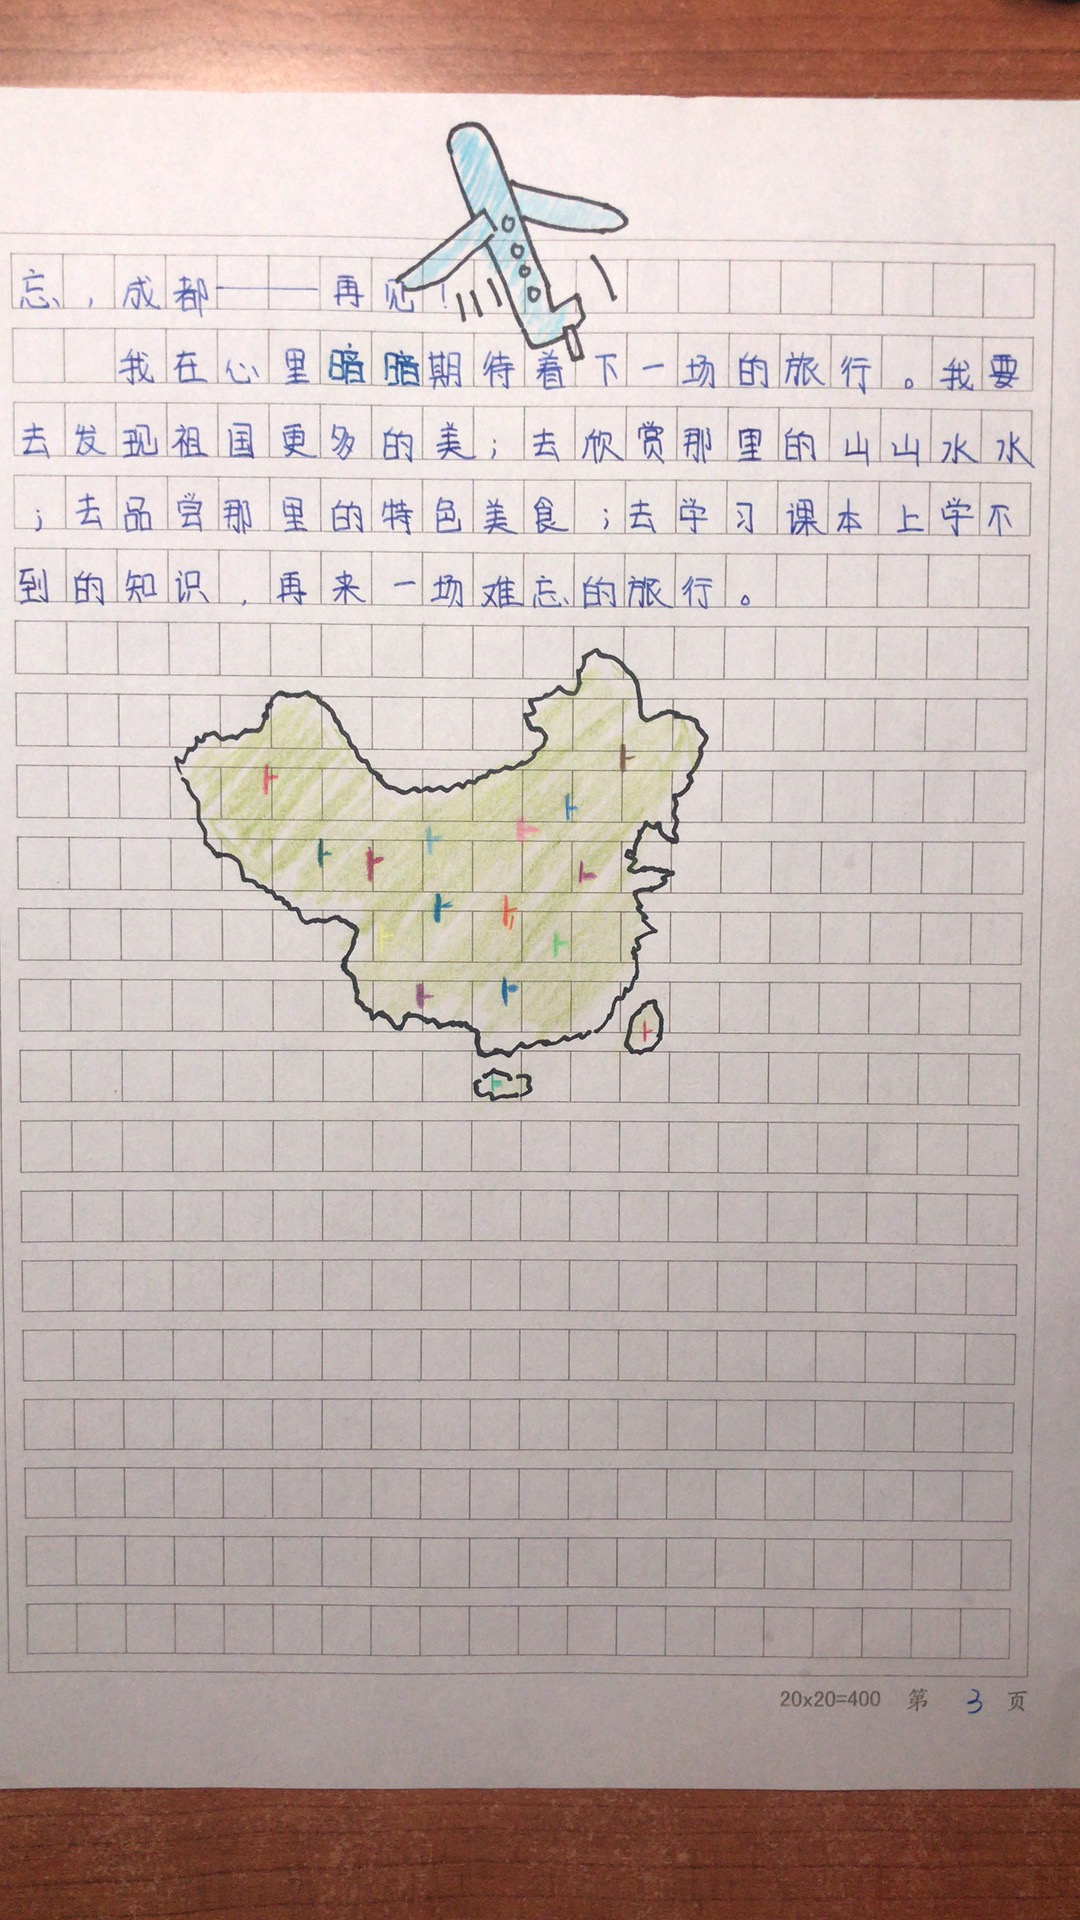 忘，成都——再见！
我在心里暗暗期待着下一场的旅行。我要
去发现祖国更多的美；去欣赏那里的山山水水
；去品尝那里的特色美食；去学习课本上学不
到的知识，再来一场难忘的旅行。
20x20=400 第 3 页